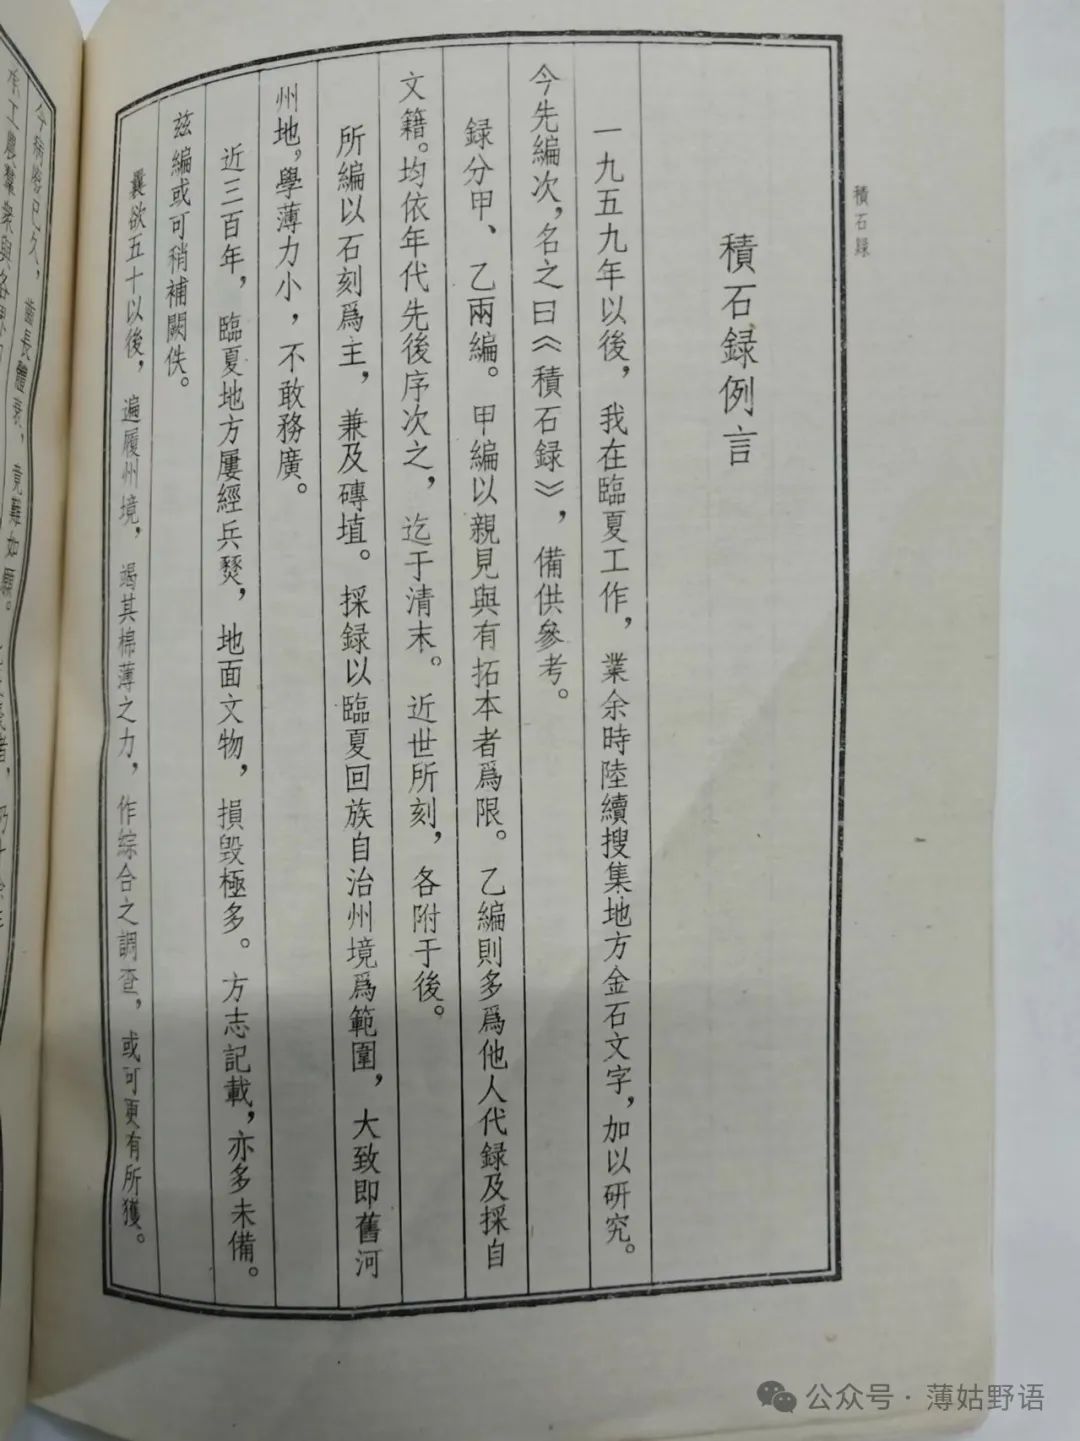 積石録
積石録例言
一九五九年以後，我在臨夏工作，業余時陸續搜集地方金石文字，加以研究。
今先編次，名之曰《積石録》，備供參考。
録分甲、乙兩編。甲編以親見與有拓本者爲限。乙編則多爲他人代録及採自
文籍。均依年代先後序次之，迄于清末。近世所刻，各附于後。
所編以石刻爲主，兼及磚埴。採録以臨夏回族自治州境爲範圍，大致即舊河
州地，學薄力小，不敢務廣。
近三百年，臨夏地方屢經兵燹，地面文物，損毀極多。方志記載，亦多未備。
兹編或可稍補闕佚。
曩欲五十以後，遍履州境，竭其棉薄之力，作綜合之調查，或可更有所獲。
齒長體衰，竟難如願。
公众号·薄姑野语